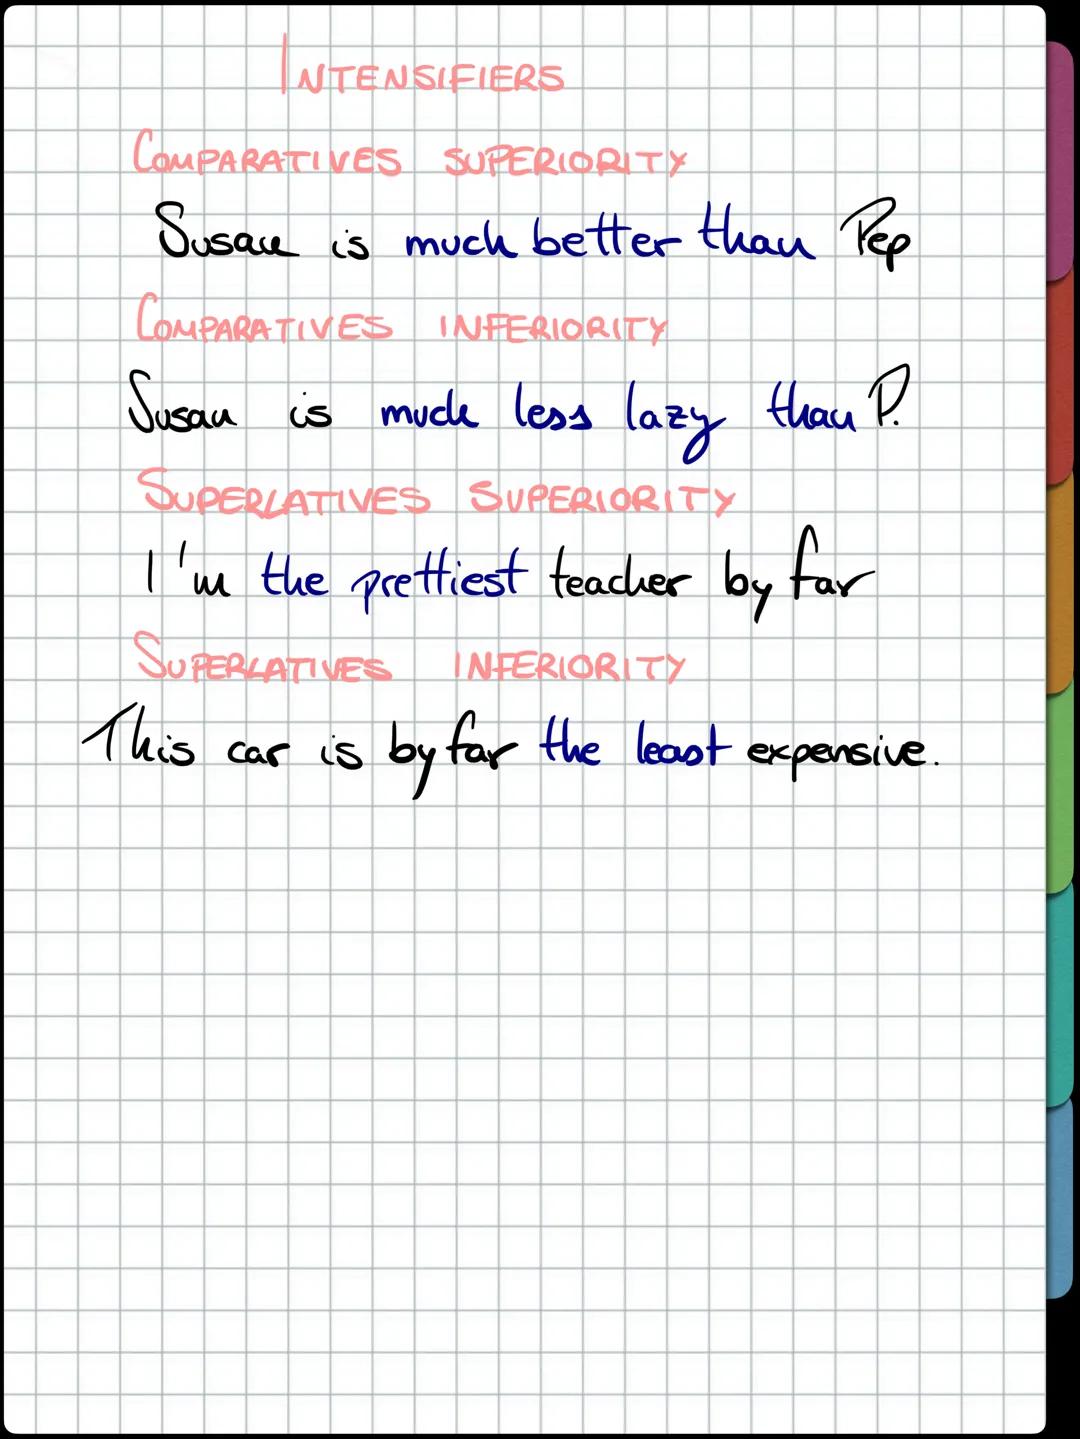 INTENSIFIERS
COMPARATIVES SUPERIORITY
Susan is much better than Pep
COMPARATIVES INFERIORITY
Susan is much less lazy than P.
SUPERLATIVES SUPERIORITY
I'm the prettiest teacher by far
SUPERLATIVES INFERIORITY
This car is by far the least expensive.